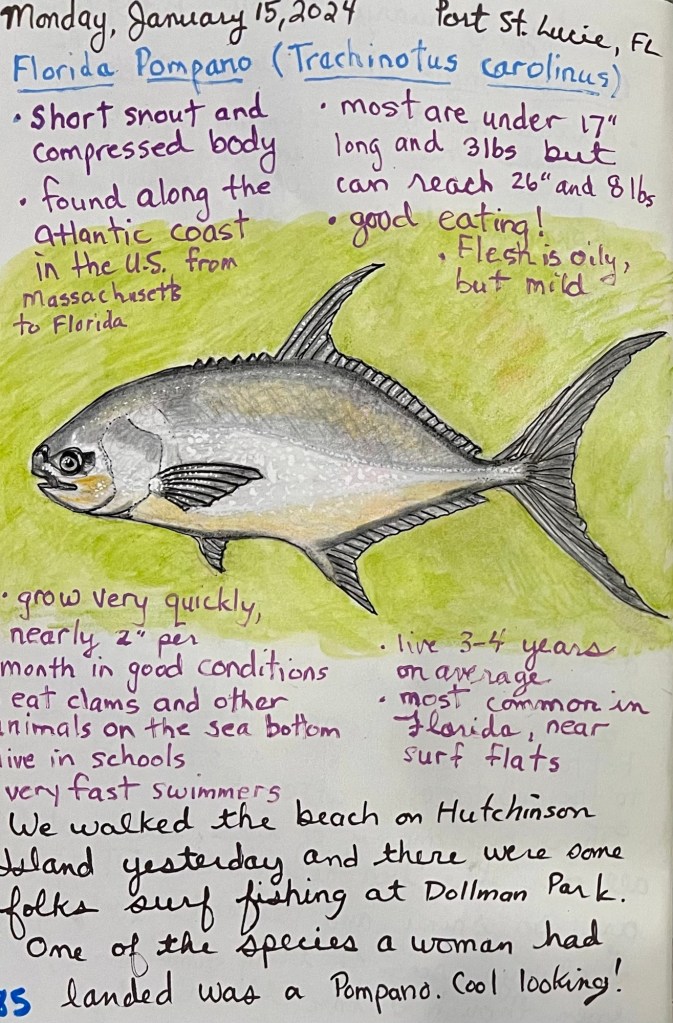 Monday, January 15, 2024 Port St. Lucie, FL
Florida Pompano (Trachinotus carolinus)
• Short snout and
compressed body
• found along the
Atlantic coast
in the U.S. from
Massachusetts
to Florida
• most are under 17"
long and 3lbs but
can reach 26" and 8lbs
• good eating!
• Flesh is oily,
but mild
• grow very quickly,
nearly 2" per
month in good conditions
eat clams and other
nimals on the sea bottom
ive in schools
very fast swimmers
• live 3-4 years
on average
• most common in
Florida, near
surf flats
We walked the beach on Hutchinson
Island yesterday and there were some
folks surf fishing at Dollman Park.
One of the species a woman had
landed was a Pompano. Cool looking!
85